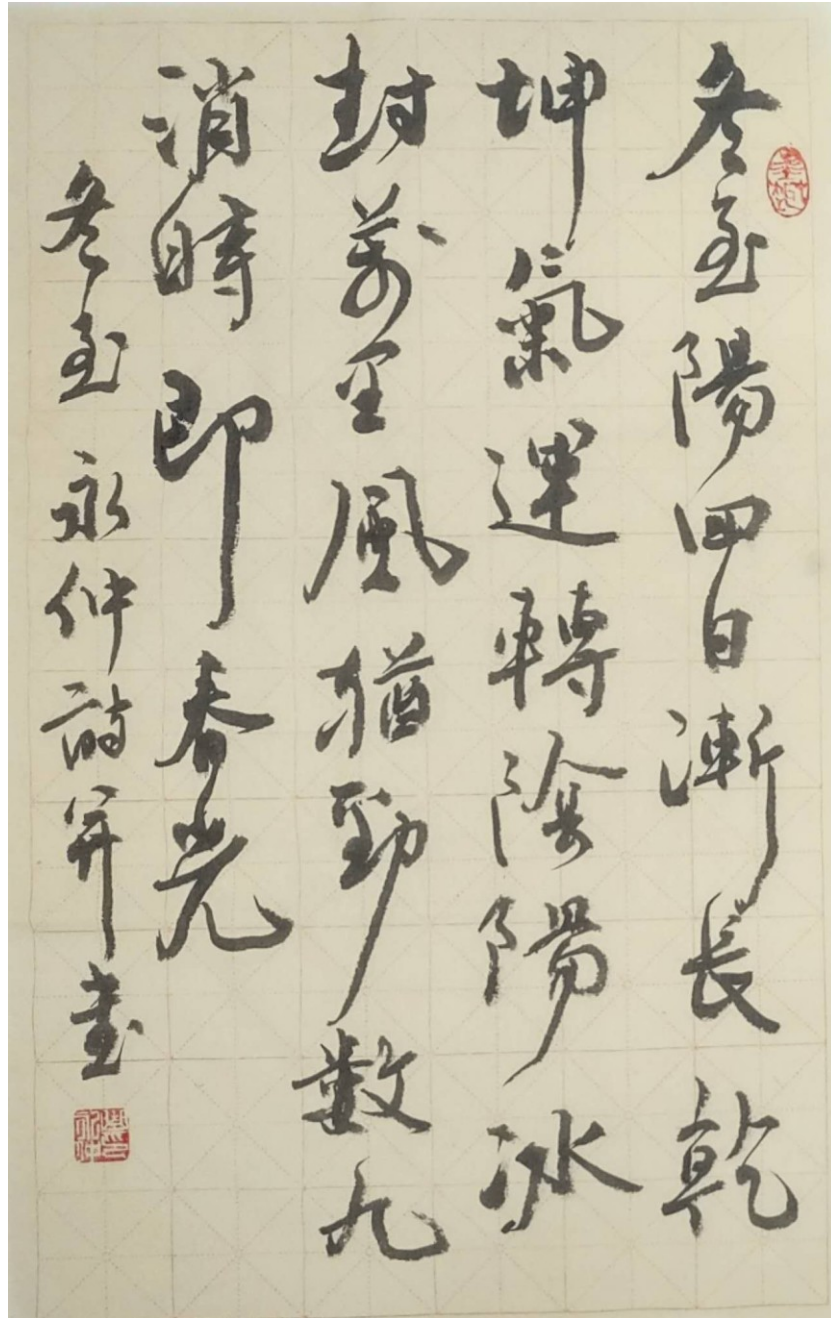 冬至陽回日漸長乾
坤氣運轉陰陽冰
封萬里風猶勁數九
消時即春光
冬至永仲詩並書